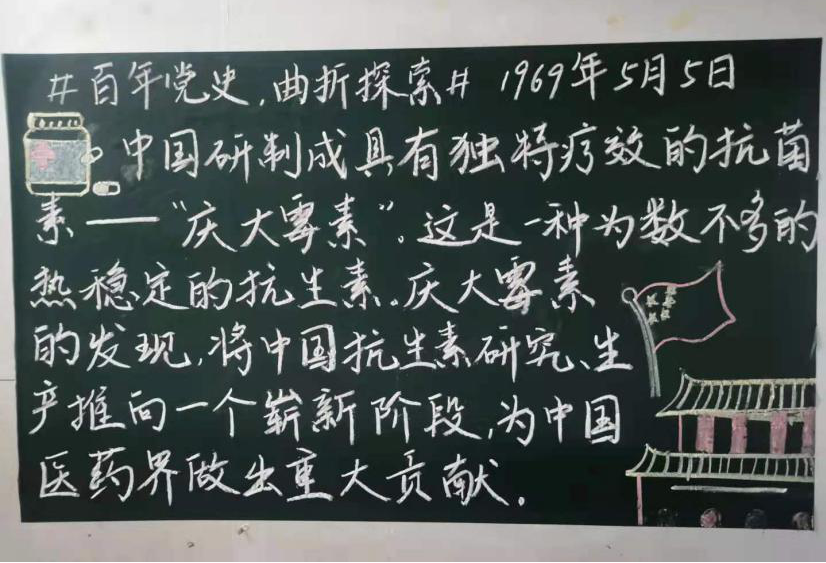 #百年党史，曲折探索# 1969年5月5日
中国研制成具有独特疗效的抗菌
素——“庆大霉素”。这是一种为数不多的
热稳定的抗生素。庆大霉素
的发现，将中国抗生素研究、生
产推向一个崭新阶段，为中国
医药界做出重大贡献。